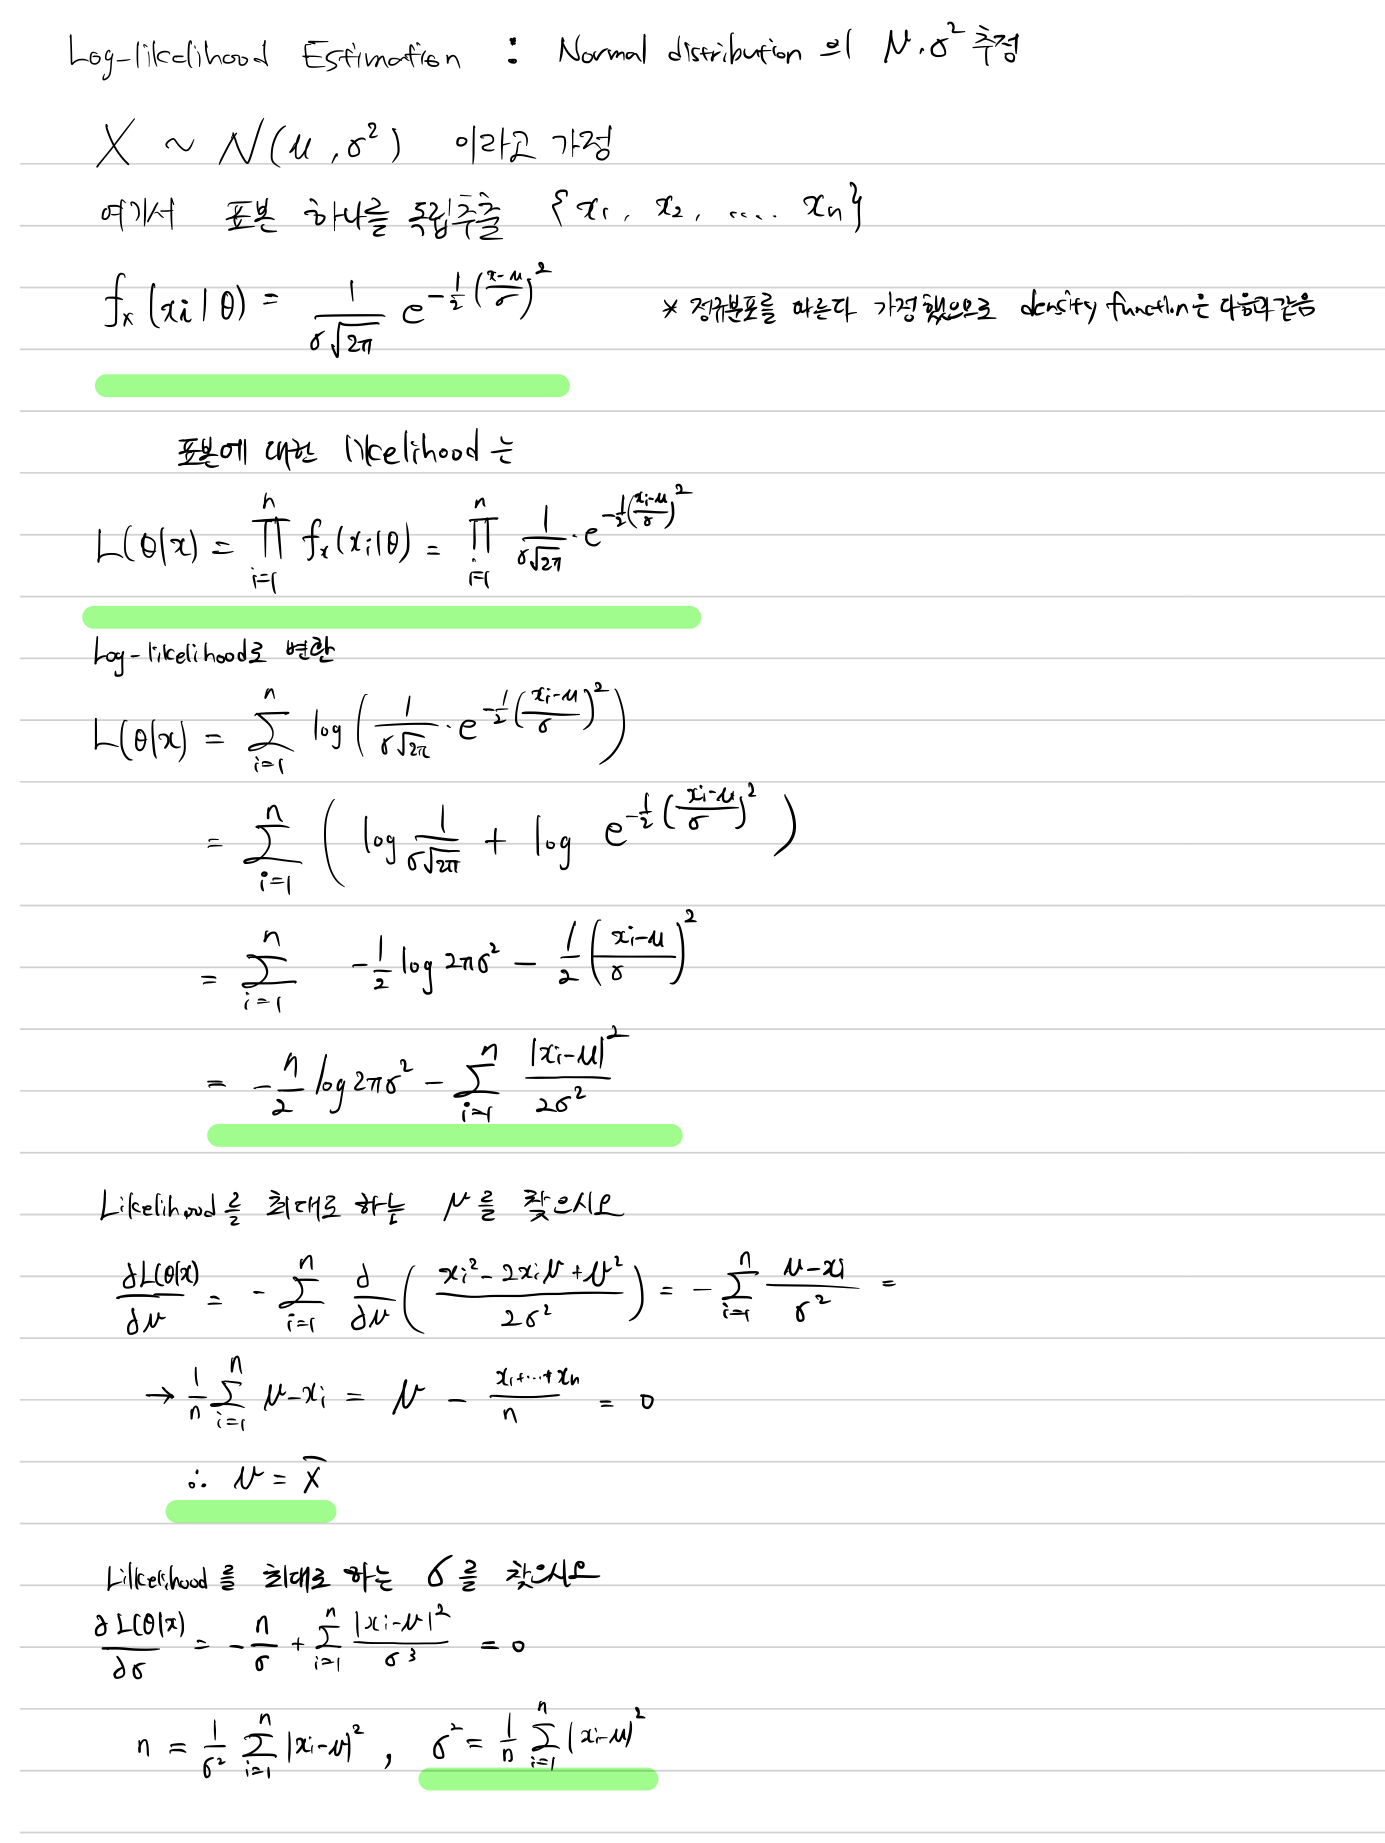 Log-likelihood Estimation : Normal distribution의 μ, σ² 추정
X ~ N(μ, σ²) 이라고 가정
여기서 표본 하나를 독립추출 {x₁, x₂, .... xₙ}
fₓ(xᵢ|θ) = 1/(σ√2π) e^(-1/2 ((x-μ)/σ)²) * 정규분포를 따른다 가정했으므로 density function은 다음과 같음
표본에 대한 likelihood는
L(θ|x) = ∏_{i=1}^{n} fₓ(xᵢ|θ) = ∏_{i=1}^{n} 1/(σ√2π) · e^(-1/2 ((xᵢ-μ)/σ)²)
Log-likelihood로 변환
L(θ|x) = ∑_{i=1}^{n} log(1/(σ√2π) · e^(-1/2 ((xᵢ-μ)/σ)²))
= ∑_{i=1}^{n} (log 1/(σ√2π) + log e^(-1/2 ((xᵢ-μ)/σ)²))
= ∑_{i=1}^{n} -1/2 log 2πσ² - 1/2 ((xᵢ-μ)/σ)²
= -n/2 log 2πσ² - ∑_{i=1}^{n} |xᵢ-μ|²/2σ²
Likelihood를 최대로 하는 μ를 찾으시오
∂L(θ|x)/∂μ = - ∑_{i=1}^{n} ∂/∂μ ((xᵢ² - 2xᵢμ + μ²)/2σ²) = - ∑_{i=1}^{n} (μ-xᵢ)/σ² =
→ 1/n ∑_{i=1}^{n} μ-xᵢ = μ - (x₁+...+xₙ)/n = 0
∴ μ = X̄
Likelihood를 최대로 하는 σ를 찾으시오
∂L(θ|x)/∂σ = -n/σ + ∑_{i=1}^{n} |xᵢ-μ|²/σ³ = 0
n = 1/σ² ∑_{i=1}^{n} |xᵢ-μ|², σ² = 1/n ∑_{i=1}^{n} |xᵢ-μ|²